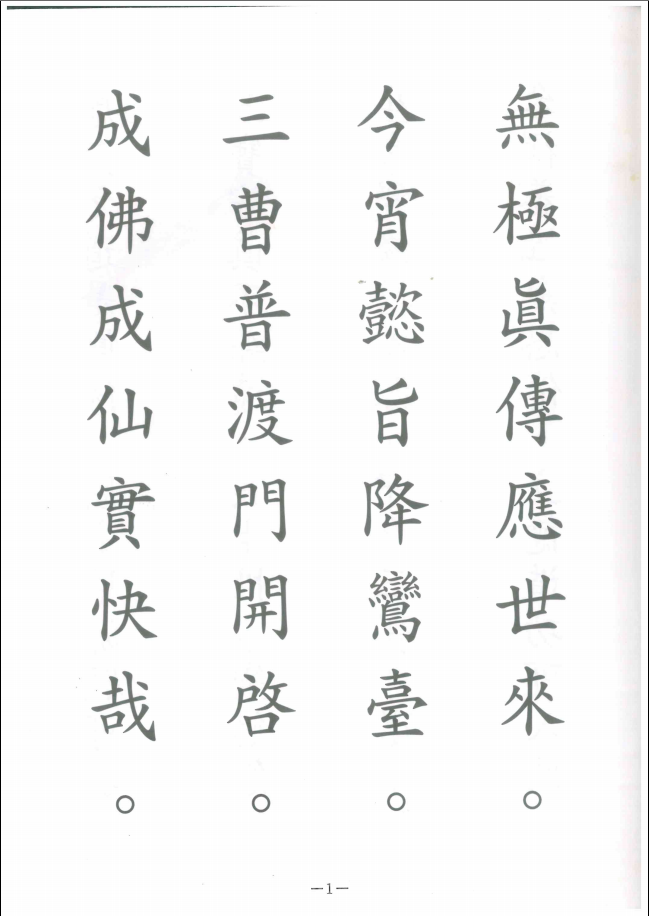 無極眞傳應世來。
今宵懿旨降鸞臺。
三曹普渡門開啓。
成佛成仙實快哉。
—1—